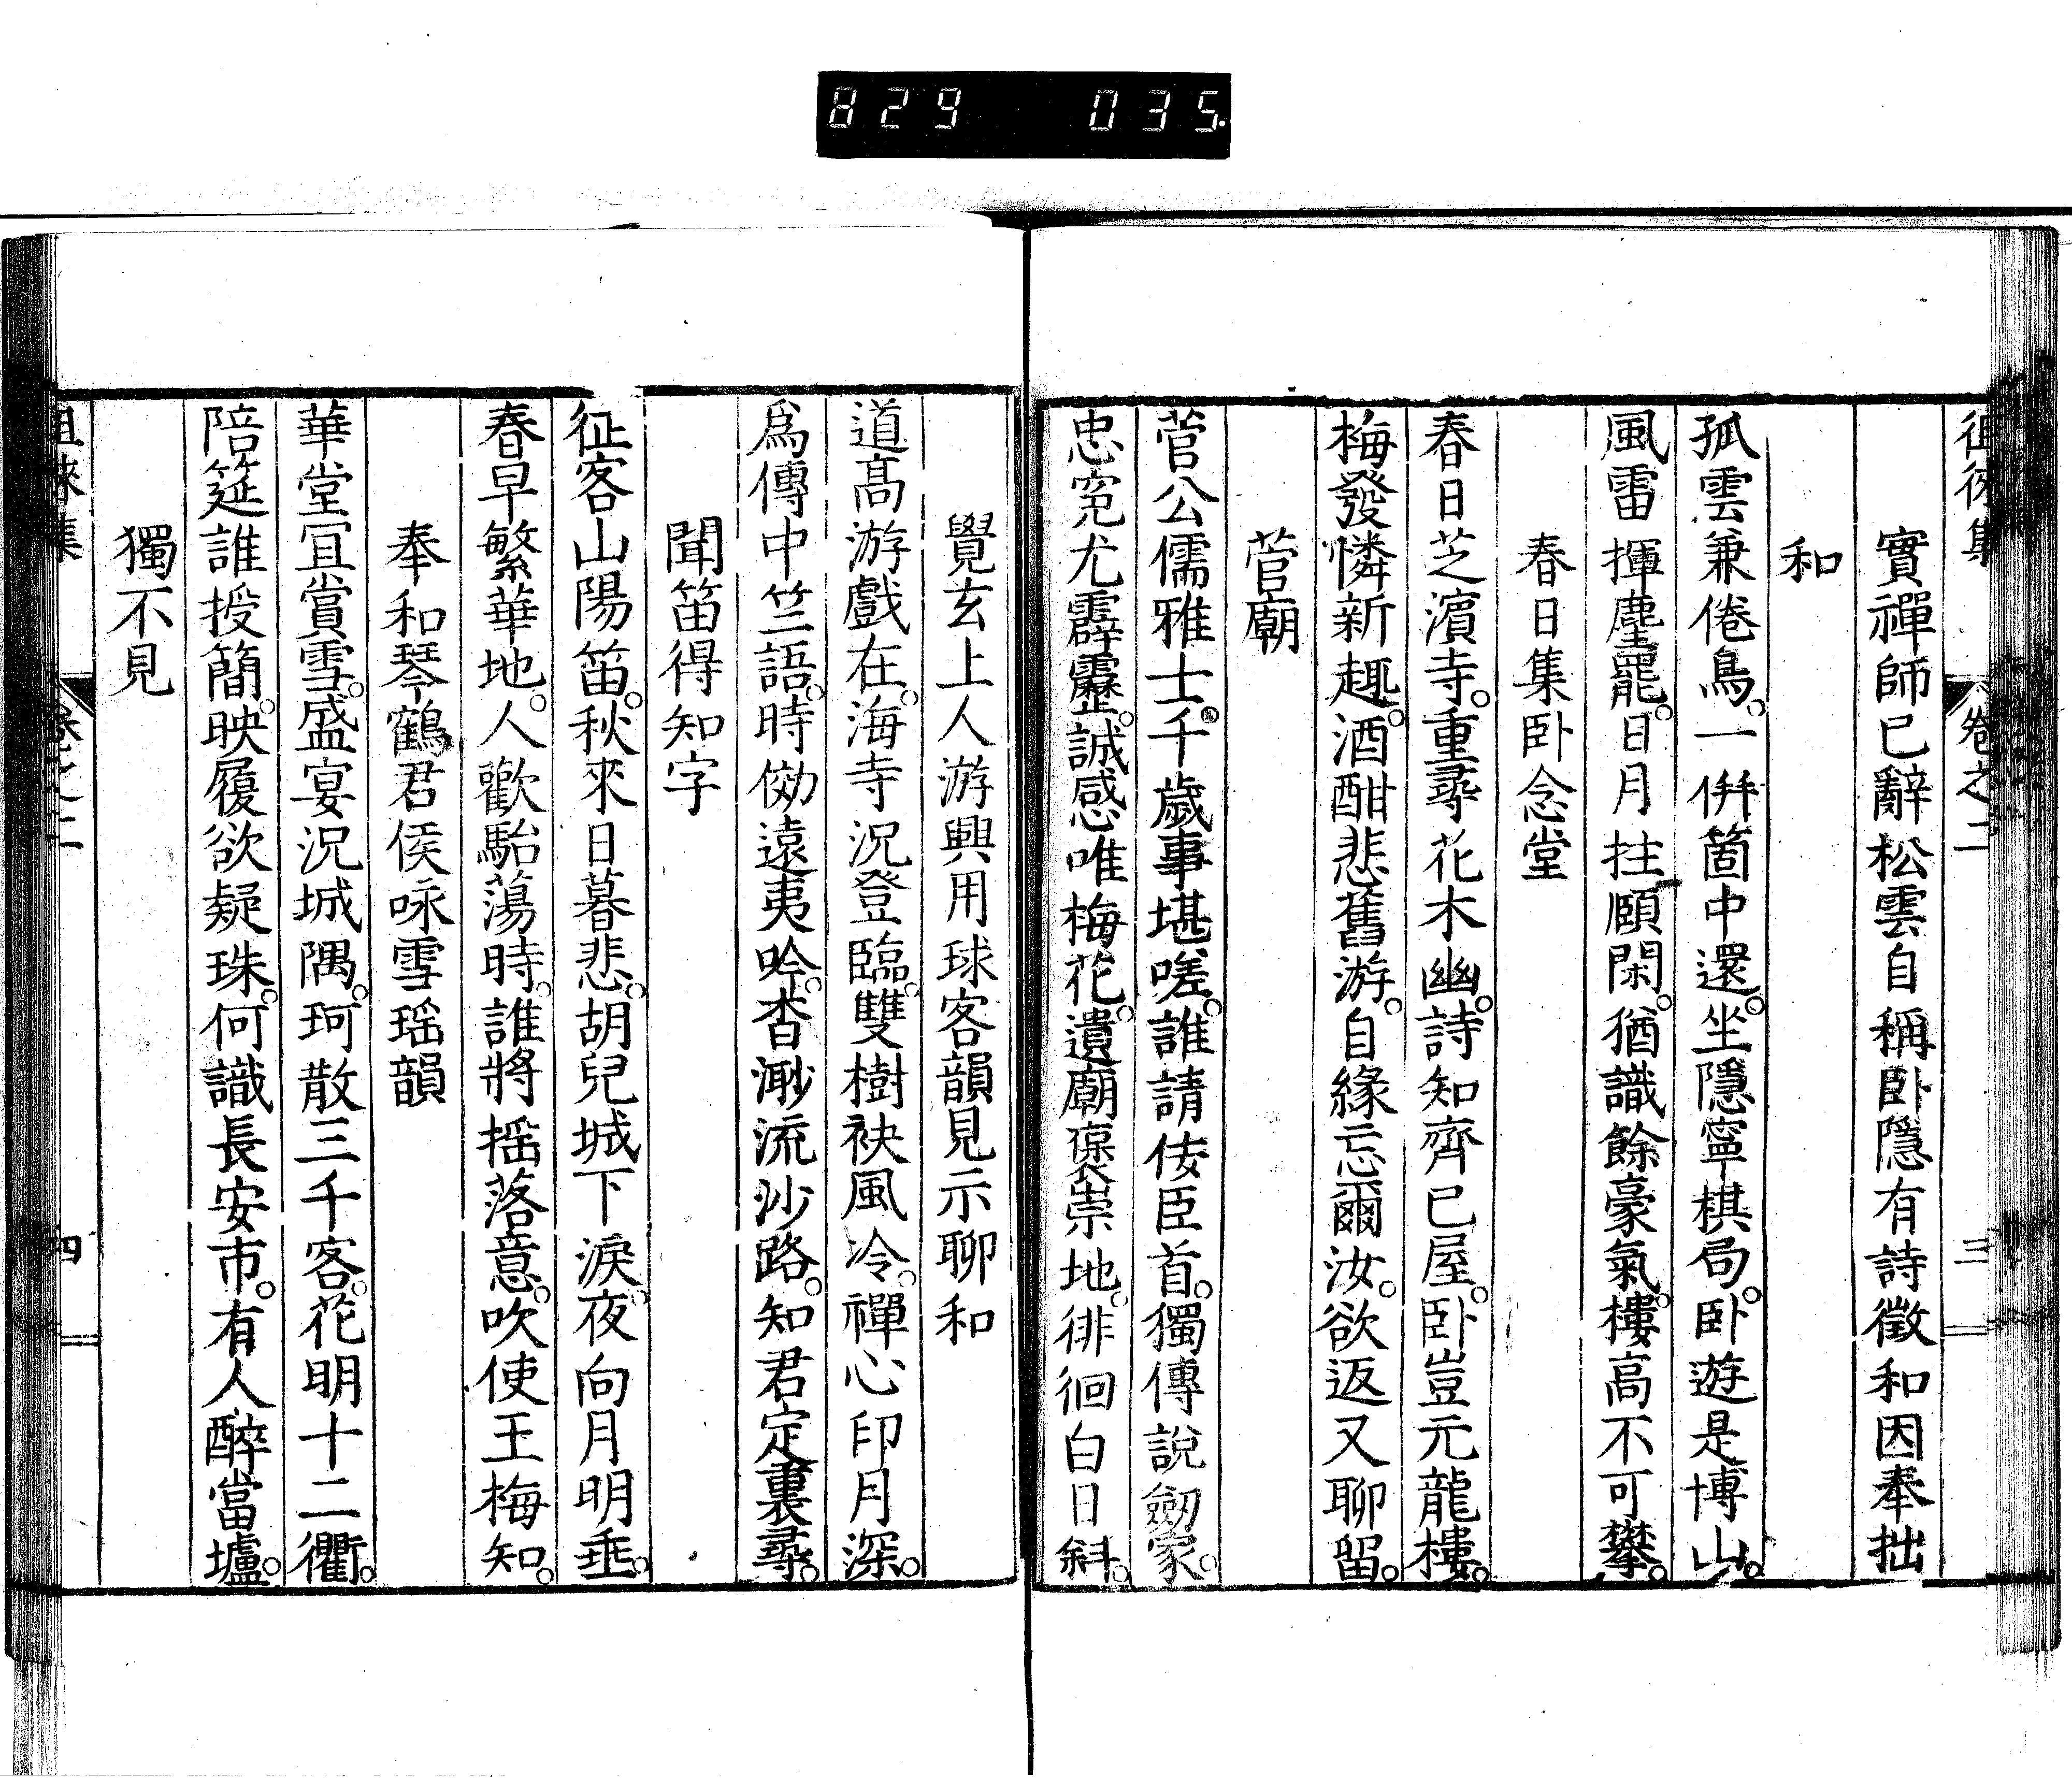 829 035
徂徠集 卷之二 三
實禪師已辭松雲自稱卧隱有詩徵和因奉拙
和
孤雲兼倦鳥。一併箇中還。坐隱寧棋局。卧遊是博山。
風雷揮塵罷。日月拄頤閑。猶識餘豪氣。樓高不可攀。
春日集卧念堂
春日芝濵寺。重尋花木幽。詩知齊已屋。卧豈元龍樓。
梅發憐新趣。酒酣悲舊游。自緣忘爾汝。欲返又聊留。
菅廟
菅公儒雅士。千歲事堪嗟。誰請佞臣首。獨傳說劒家。
忠寃尤霹靂。誠感唯梅花。遺廟褒崇地。徘徊白日斜。
覺玄上人游興用球客韻見示聊和
道髙游戲在。海寺況登臨。雙樹袂風冷。禪心印月深。
爲傳中竺語。時効遠夷吟。杳渺流沙路。知君定裏尋。
聞笛得知字
征客山陽笛。秋來日暮悲。胡兒城下淚。夜向月明垂。
春早繁華地。人歡駘蕩時。誰將揺落意。吹使玉梅知。
奉和琴鶴君侯咏雪瑶韻
華堂冝賞雪。盛宴況城隅。珂散三千客。花明十二衢。
陪筵誰授簡。映履欲疑珠。何識長安市。有人醉當壚。
獨不見
徂徠集 卷之二 四